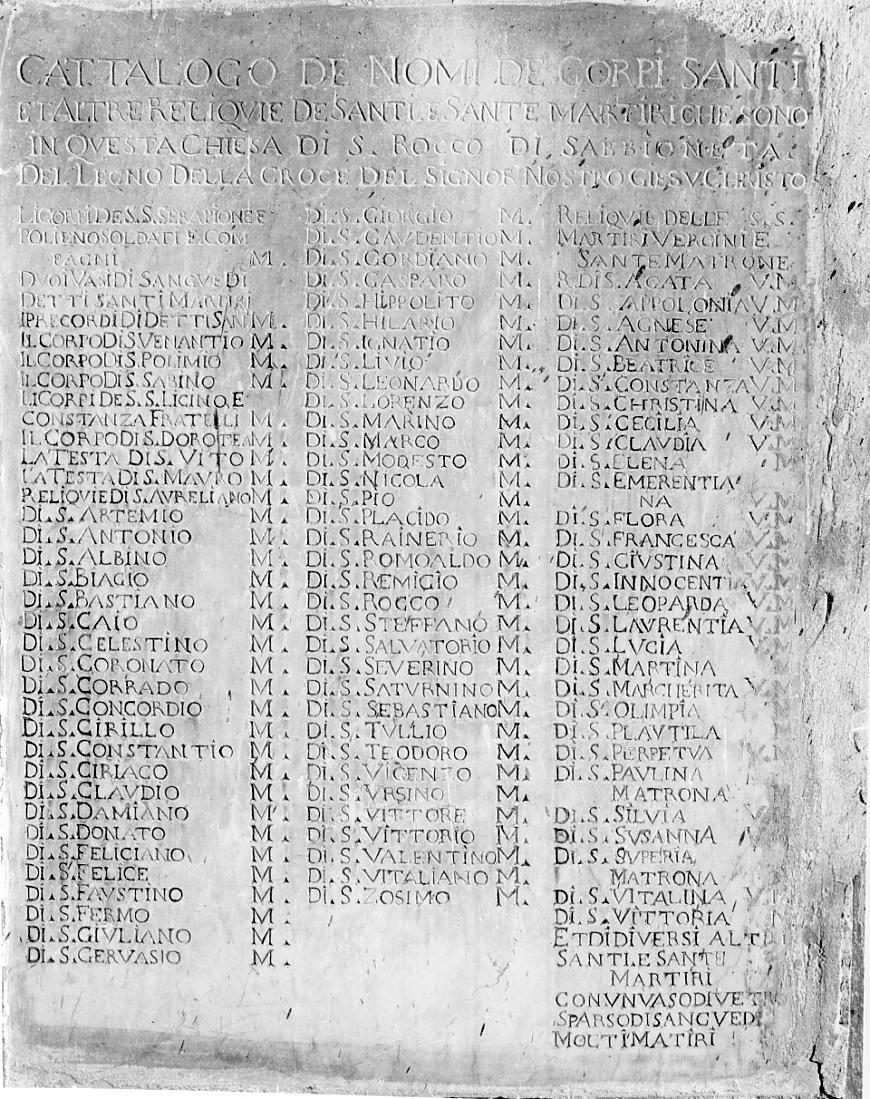 CATTALOGO DE NOMI DE CORPI SANTI
ET ALTRE RELIQVIE DE SANTI E SANTE MARTIRI CHE SONO
IN QVESTA CHIESA DI S. ROCCO DI SABBIONETA.
DEL LEGNO DELLA CROCE DEL SIGNOR NOSTRO GIESV CHRISTO
LI CORPI DE S.S. SERAPIONE E
POLIENO SOLDATI E COM
PAGNI M.
DVOI VASI DI SANGVE DI
DETTI SANTI MARTIRI
I PRECORDI DI DETTI SAN M.
IL CORPO DI S VENANTIO M.
IL CORPO DI S. POLIMIO M.
IL CORPO DI S. SABINO M.
LI CORPI DE S.S. LICINO, E
CONSTANZA FRATELLI M.
IL CORPO DI S. DOROTEA M.
LA TESTA DI S. VITO M.
LA TESTA DI S. MAVRO M.
RELIQVIE DI S. AVRELIANO M.
DI. S. ARTEMIO M.
DI. S. ANTONIO M.
DI. S. ALBINO M.
DI. S. BIAGIO M.
DI. S. BASTIANO M.
DI. S. CAIO M.
DI. S. CELESTINO M.
DI. S. CORONATO M.
DI. S. CORRADO M.
DI. S. CONCORDIO M.
DI. S. CIRILLO M.
DI. S. CONSTANTIO M.
DI. S. CIRIACO M.
DI. S. CLAVDIO M.
DI. S. DAMIANO M.
DI. S. DONATO M.
DI. S. FELICIANO M.
DI. S. FELICE M.
DI. S. FAVSTINO M.
DI. S. FERMO M.
DI. S. GIVLIANO M.
DI. S. GERVASIO M.
DI. S. GIORGIO M.
DI. S. GAVDENTIO M.
DI. S. GORDIANO M.
DI. S. GASPARO M.
DI. S. HIPPOLITO M.
DI. S. HILARIO M.
DI. S. IGNATIO M.
DI. S. LIVIO M.
DI. S. LEONARDO M.
DI. S. LORENZO M.
DI. S. MARINO M.
DI. S. MARCO M.
DI. S. MODESTO M.
DI. S. NICOLA M.
DI. S. PIO M.
DI. S. PLACIDO M.
DI. S. RAINERIO M.
DI. S. ROMOALDO M.
DI. S. REMIGIO M.
DI. S. ROCCO M.
DI. S. STEFFANO M.
DI. S. SALVATORIO M.
DI. S. SEVERINO M.
DI. S. SATVRNINO M.
DI. S. SEBASTIANO M.
DI. S. TVLLIO M.
DI. S. TEODORO M.
DI. S. VICENZO M.
DI. S. VRSINO M.
DI. S. VITTORE M.
DI. S. VITTORIO M.
DI. S. VALENTINO M.
DI. S. VITALIANO M.
DI. S. ZOSIMO M.
RELIQVIE DELLE S.S.
MARTIRI VERGINI E
SANTE MATRONE
R. DI S. AGATA V.M
DI. S. APPOLONIA V.M
DI. S. AGNESE V.M
DI. S. ANTONINA V.M
DI. S. BEATRICE V.M
DI. S. CONSTANZA V.M
DI. S. CHRISTINA V.M
DI. S. CECILIA V.M
DI. S. CLAVDIA V.M
DI. S. ELENA M
DI. S. EMERENTIA
NA V.M
DI. S. FLORA V.M
DI. S. FRANCESCA V.M
DI. S. GIVSTINA V.M
DI. S. INNOCENTIA V.M
DI. S. LEOPARDA V.M
DI. S. LAVRENTIA V.M
DI. S. LVCIA V.M
DI. S. MARTINA V.M
DI. S. MARGHERITA V.M
DI. S. OLIMPIA
DI. S. PLAVTILA V.M
DI. S. PERPETVA V.M
DI. S. PAVLINA
MATRONA
DI. S. SILVIA
DI. S. SVSANNA V.M
DI. S. SVPERIA
MATRONA
DI. S. VITALINA V.M
DI. S. VITTORIA M
ET DI DIVERSI ALTRI
SANTI E SANTE
MARTIRI
CON VN VASO DI VETRO
SPARSO DI SANGVE DI
MOLTI MATIRI